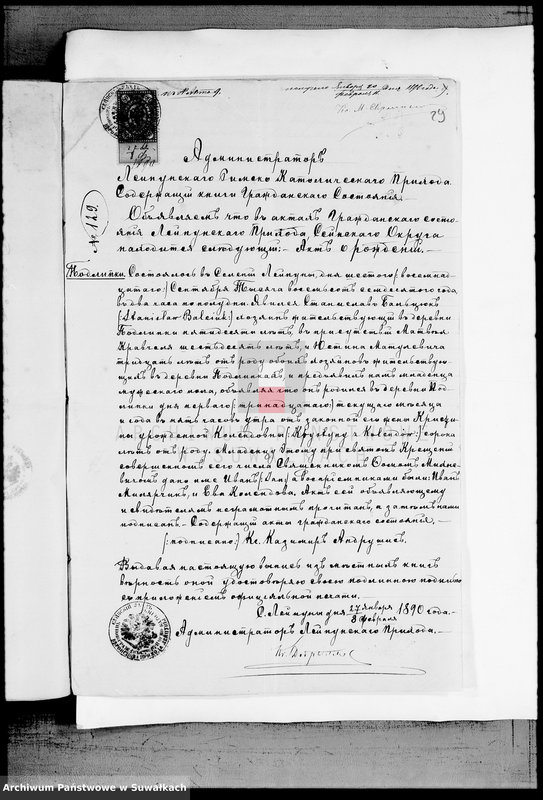 29
Администраторъ
Лейпунскаго Римско Католическаго Прихода
Содержащій книги Гражданскаго Состоянія.
№ 129.
Объявляемъ что въ актахъ Гражданскаго состо-
янія Лейпунскаго Прихода Сейнскаго Округа
находится слѣдующій:- Актъ о рожденіи.
Подлипки. Состоялось въ Селѣ Лейпуны, дня шестого /: восемнад-
цатаго:/ Сентября Тысяча восемьсотъ семдесятого года
въ два часа по полудни. Явился Станиславъ Бальцюкъ
/:Stanisław Balciuk:/ хозяинъ жительствующій въ деревни
Подлипки пятидесяти лѣтъ, въ присутствіи Матвѣя
Кравчеля шестьдесятъ лѣтъ, и Юстина Матулевича
тридцать лѣтъ отъ роду обоихъ хозяйновъ жительствую-
щихъ въ деревни Подлипкахъ, и предъявилъ намъ младенца
мужескаго пола, объявляя что онъ родился въ деревни Под-
липки дня перваго /: тринадцатаго:/ текущаго мѣсяца
и года въ пять часовъ утра отъ законной его жены Кристи-
ны урожденной Колендовны /: :/ сорока
лѣтъ отъ роду. Младенцу этому при святомъ Крещеніи
совершенномъ его числа Священникомъ
дано имя Иванъ /:Jan:/ а воспріемниками были: Иванъ
и Ева Колендова. Актъ сей объявляющему
и свидѣтелямъ неграматнымъ прочитанъ, а затѣмъ нами
подписанъ.- Содержащій акты гражданскаго состоянія.-
/:подписано:/ Кс. Казимиръ Андрушис.
Выдавая настоящую выпись изъ мѣстныхъ книгъ
вѣрность оной удостовѣряю своею подлинною подписью
съ приложеніемъ официальной печати.
С. Лейпуны дня 27 Января / 8 Февраля 1890 года.-
Администраторъ Лейпунскаго Прихода.-
Archiwum Państwowe w Suwałkach